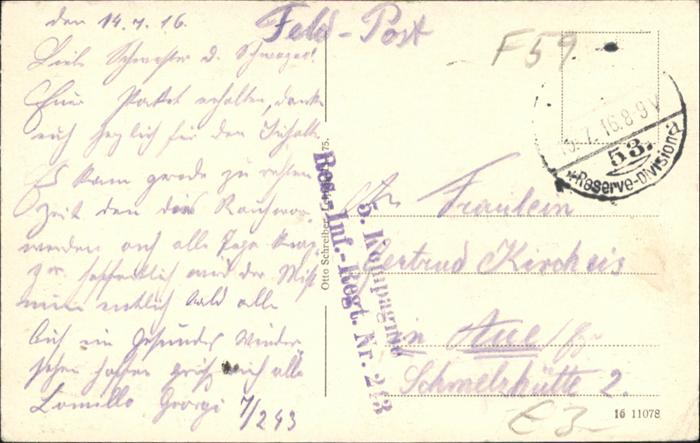 den 14.7.16.
Feld-Post
Liebe Schwester u. Schwager!
Euer Paket erhalten, danke
euch herzlich für den Inhalt.
Es kam gerade zu rechten
Zeit den das Rauch
werden auch alle Tage
hoffentlich wird der Mist
nun entlich bald alle
Auf ein gesundes Wieder
sehen hoffen grüßt euch alle
Georgi
7/243
F59
7.16.8-9V
53.
*Reserve-Division
Otto Schreiber
5. Kompagnie
Res.-Inf.-Regt. Nr. 243
An Fräulein
Gertrud Kircheis
in Aue
Schmelzhütte 2.
€3-
16 11078